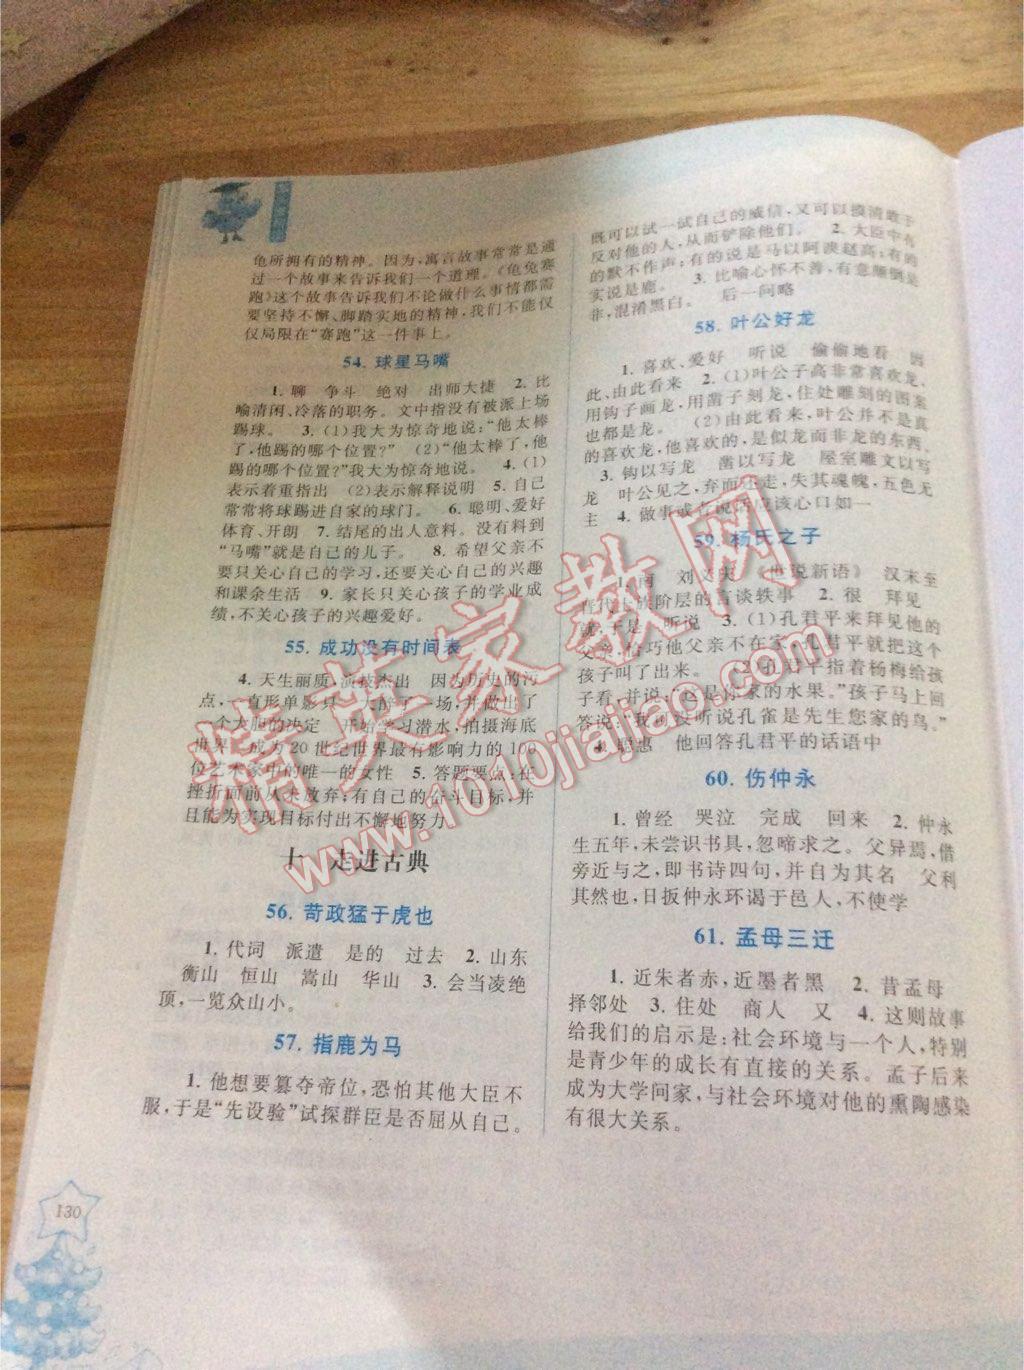 龟所拥有的精神。因为,寓言故事常常是通
过一个故事来告诉我们一个道理。《龟兔赛
跑》这个故事告诉我们不论做什么事情都需
要坚持不懈、脚踏实地的精神,我们不能仅
仅局限在“赛跑”这一件事上。
54. 球星马嘴
1. 聊　争斗　绝对　出师大捷　2. 比
喻清闲、冷落的职务。文中指没有被派上场
踢球。　3. (1)我大为惊奇地说:“他太棒
了,他踢的哪个位置?”　(2)“他太棒了,他
踢的哪个位置?”我大为惊奇地说。　4. (1)
表示着重指出　(2)表示解释说明　5. 自己
常常将球踢进自家的球门。　6. 聪明、爱好
体育、开朗　7. 结尾的出人意料。没有料到
“马嘴”就是自己的儿子。　8. 希望父亲不
要只关心自己的学习,还要关心自己的兴趣
和课余生活　9. 家长只关心孩子的学业成
绩,不关心孩子的兴趣爱好。
55. 成功没有时间表
4. 天生丽质,演技杰出　因为历史的污
点,一直形单影只　大醉了一场,并做出了
一个大胆的决定　开始学习潜水,拍摄海底
世界　成为20世纪世界最有影响力的100
位艺术家中的唯一的女性　5. 答题要点:在
挫折面前从未放弃;有自己的奋斗目标,并
且能为实现目标付出不懈地努力
十　走进古典
56. 苛政猛于虎也
1. 代词　派遣　是的　过去　2. 山东
衡山　恒山　嵩山　华山　3. 会当凌绝
顶,一览众山小。
57. 指鹿为马
1. 他想要篡夺帝位,恐怕其他大臣不
服,于是“先设验”试探群臣是否屈从自己。
既可以试一试自己的威信,又可以摸清敢于
反对他的人,从而铲除他们。　2. 大臣中有
的默不作声;有的说是马以阿谀赵高;有的
实说是鹿。　3. 比喻心怀不善,有意颠倒是
非,混淆黑白。　后一问略
58. 叶公好龙
1. 喜欢、爱好　听说　偷偷地看　因
此、由此看来　2. (1)叶公子高非常喜欢龙,
用钩子画龙,用凿子刻龙,住处雕刻的图案
也都是龙。　(2)由此看来,叶公并不是真
的喜欢龙,他喜欢的,是似龙而非龙的东西。
3. 钩以写龙　凿以写龙　屋室雕文以写
龙　叶公见之,弃而还走,失其魂魄,五色无
主　4. 做事或者说话应该心口如一
59. 杨氏之子
1. 南　刘义庆　《世说新语》　汉末至
晋代士族阶层的言谈轶事　2. 很　拜见
就,于是　听说　3. (1)孔君平来拜见他的
父亲,恰巧他父亲不在家,孔君平就把这个
孩子叫了出来。　(2)孔君平指着杨梅给孩
子看,并说:“这是你家的水果。”孩子马上回
答说:“我可没听说孔雀是先生您家的鸟。”
4. 聪惠　他回答孔君平的话语中
60. 伤仲永
1. 曾经　哭泣　完成　回来　2. 仲永
生五年,未尝识书具,忽啼求之。父异焉,借
旁近与之,即书诗四句,并自为其名　父利
其然也,日扳仲永环谒于邑人,不使学
61. 孟母三迁
1. 近朱者赤,近墨者黑　2. 昔孟母
择邻处　3. 住处　商人　又　4. 这则故事
给我们的启示是:社会环境与一个人,特别
是青少年的成长有直接的关系。孟子后来
成为大学问家,与社会环境对他的熏陶感染
有很大关系。
130
精英家教网
www.1010jiajiao.com